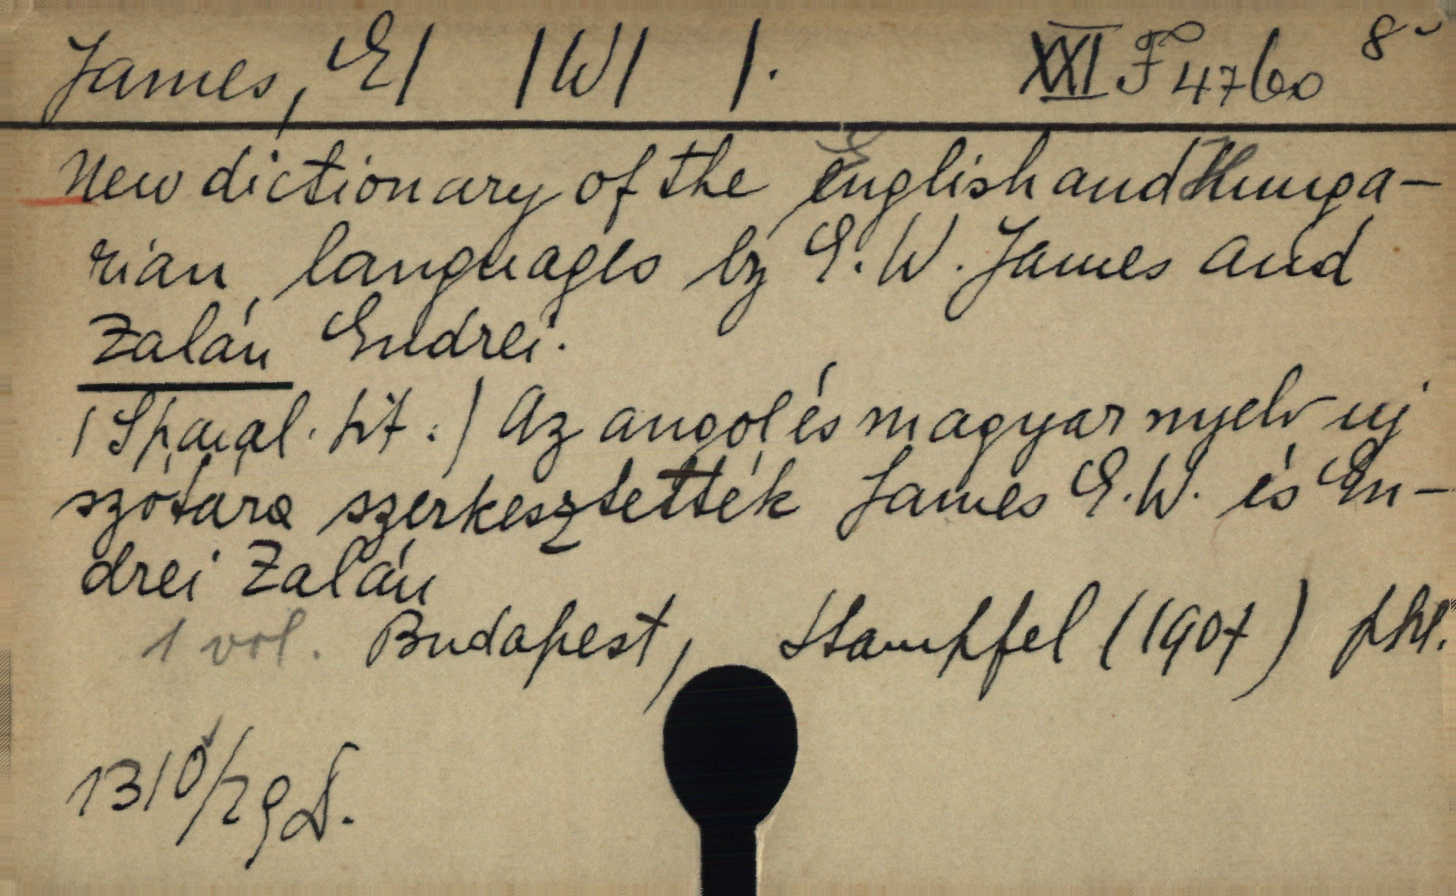 James, E/ /W/ /. XXI F 4760 8°
New dictionary of the English and Hunga-
rian languages by E. W. James and
Zalán Endrei.
/Sparal. tit.:/ Az angol és magyar nyelv uj
szótára szerkesztették James E.W. és En-
drei Zalán
1 vol. Budapest, Stampfel (1907)
1310/29 D.